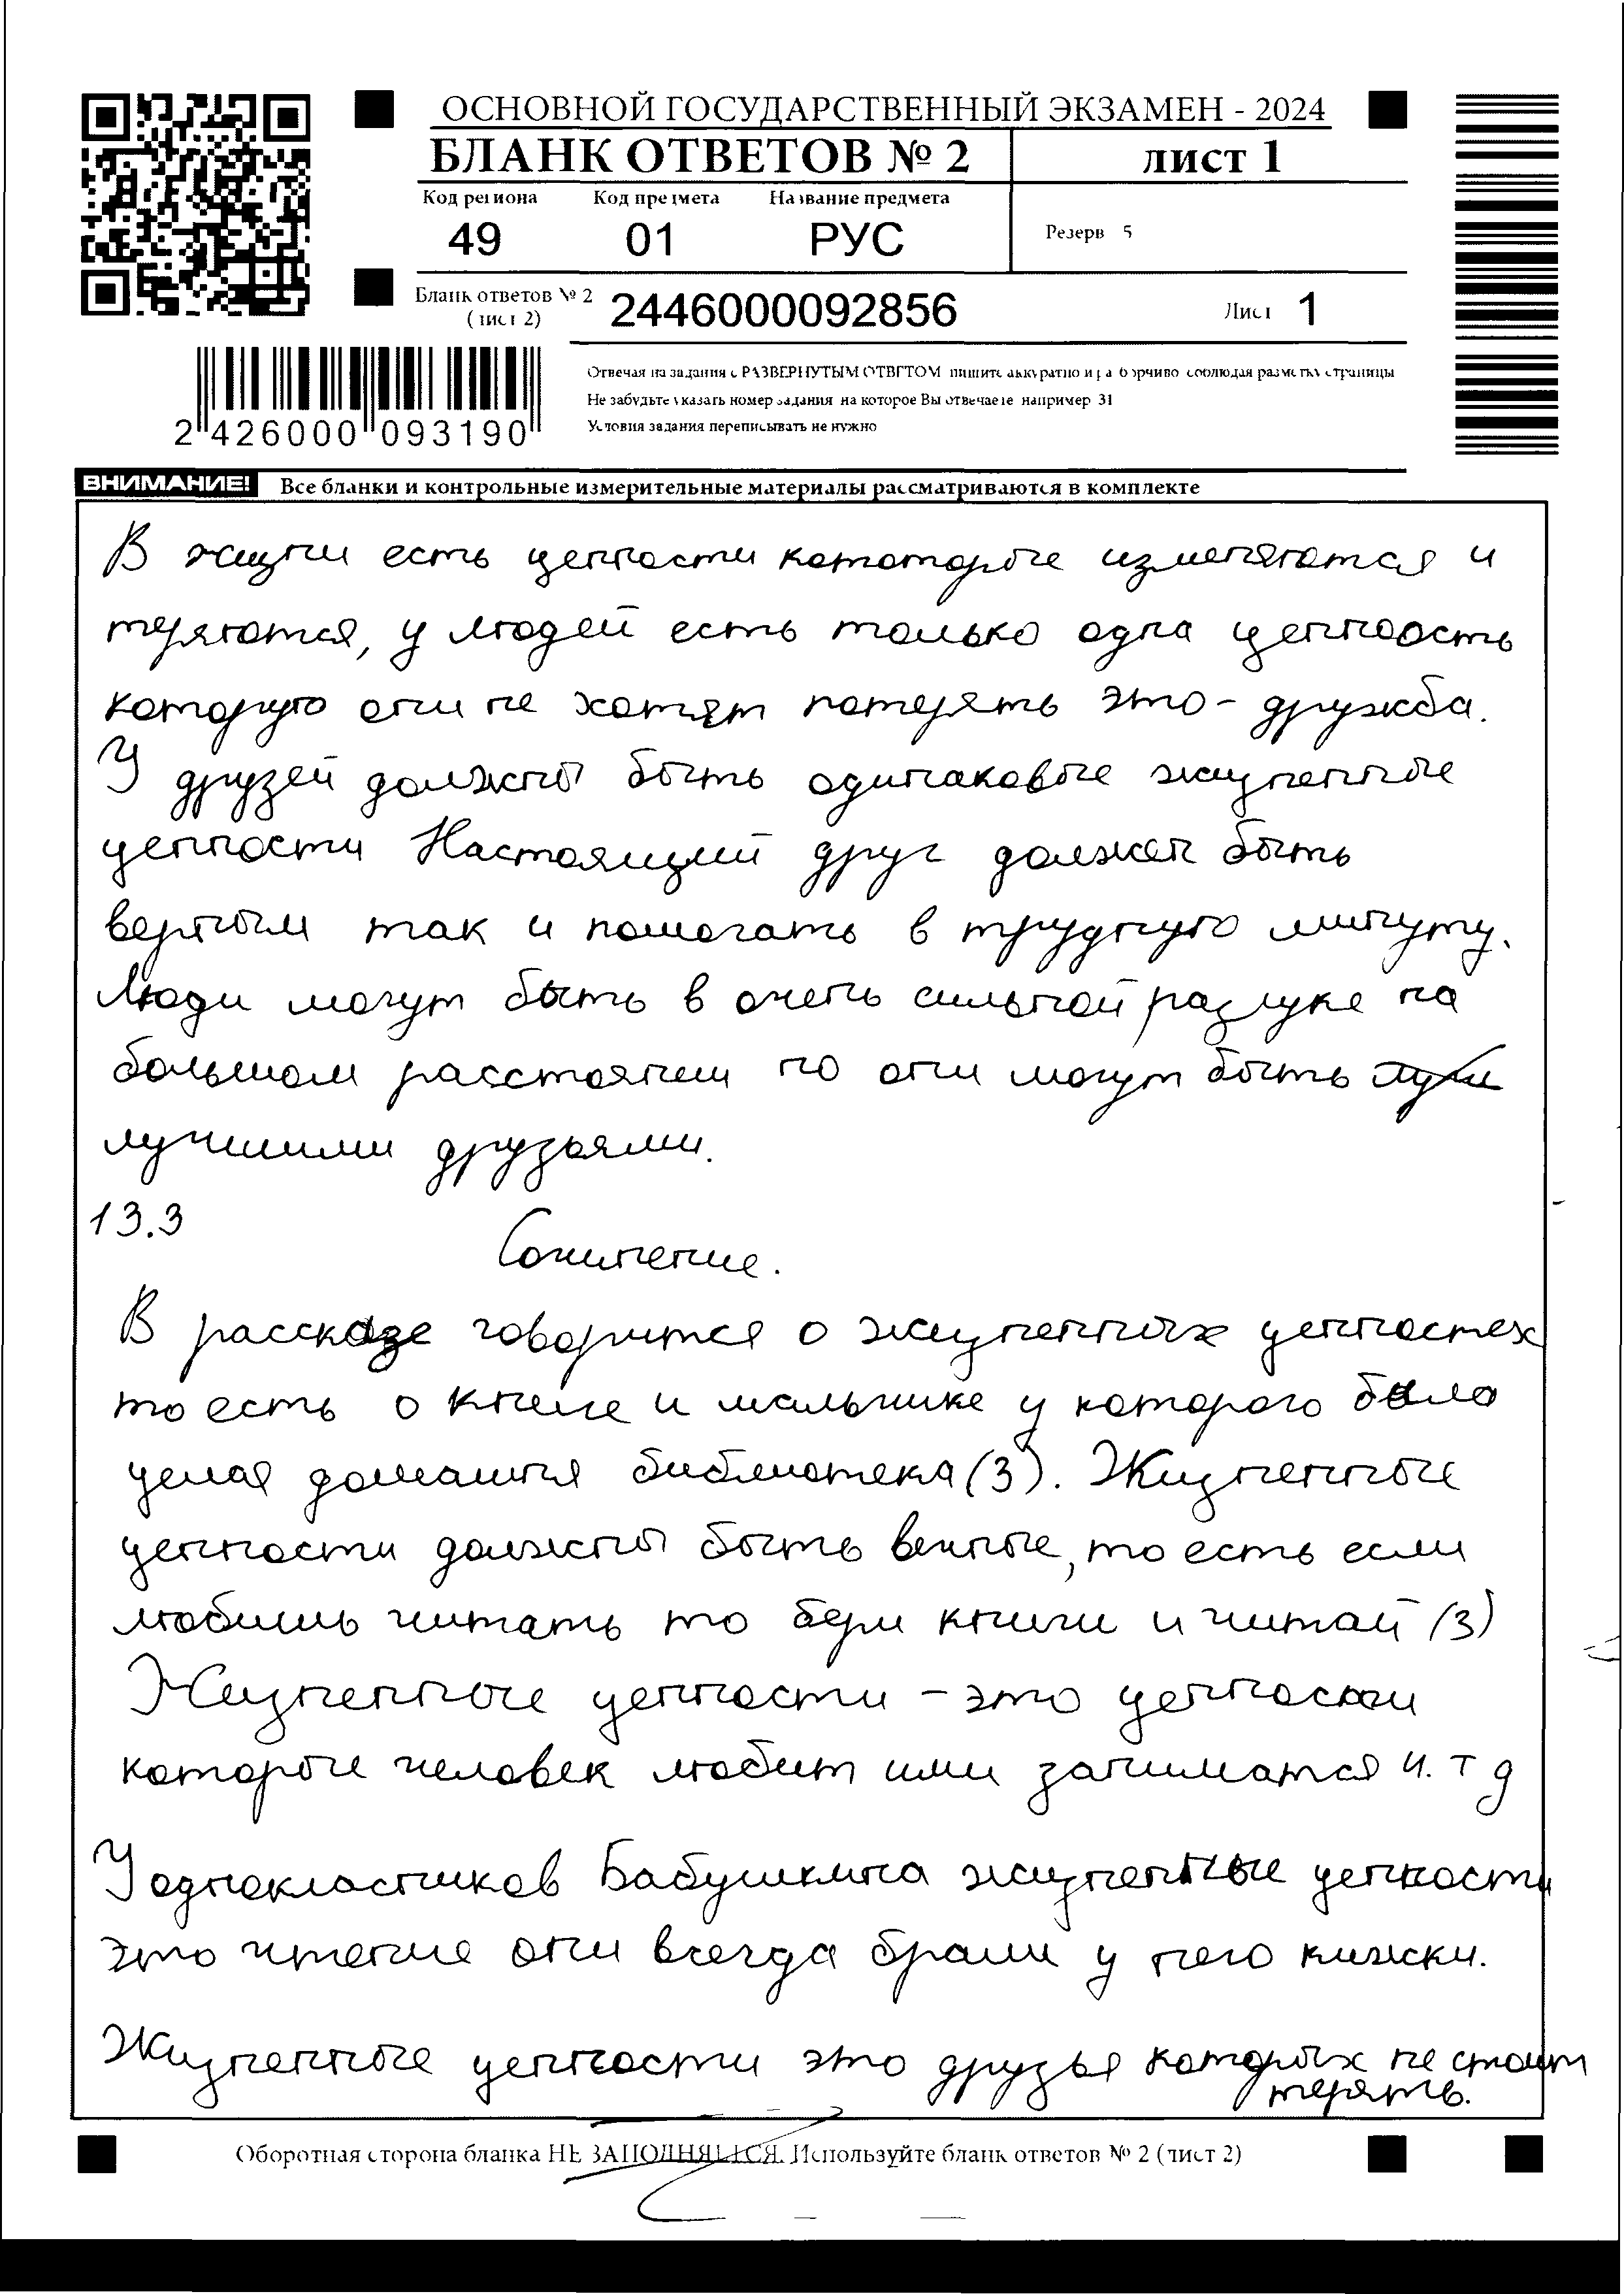 ОСНОВНОЙ ГОСУДАРСТВЕННЫЙ ЭКЗАМЕН - 2024
БЛАНК ОТВЕТОВ № 2
лист 1
Код региона Код предмета Название предмета
49 01 РУС
Резерв 5
Бланк ответов № 2
(лист 2)
2446000092856
Лист 1
Отвечая на задания с РАЗВЕРНУТЫМ ОТВЕТОМ пишите аккуратно и разборчиво соблюдая разметку страницы
Не забудьте указать номер задания на которое Вы отвечаете например 31
Условия задания переписывать не нужно
2 426000 093190
ВНИМАНИЕ! Все бланки и контрольные измерительные материалы рассматриваются в комплекте
В жизни есть ценности кототорые изменяются и
теряются, у людей есть только одна ценноость
которую они не хотят потерять это - дружба.
У друзей должны быть одинаковые жизненные
ценности Настоящий друг должен быть
верным так и помогать в трудную минуту.
Люди могут быть в очень сильной разлуке на
большом расстоянии но они могут быть
лучшими друзьями.
13.3
Сочинение.
В рассказе говорится о жизненных ценностех
то есть о книге и мальчике у которого было
целая домашня библиотека (3). Жизненные
ценности должны быть вечные, то есть если
любишь читать то бери книги и читай (3)
Жизненные ценности - это ценности
которые человек любит или заниматся и. т д
У однокластиков Бабушкина жизненные ценности
это чтение они всегда брали у него книжки.
Жизненные ценности это друзья которых не стоит
терять.
Оборотная сторона бланка НЕ ЗАПОЛНЯЕТСЯ. Используйте бланк ответов № 2 (лист 2)